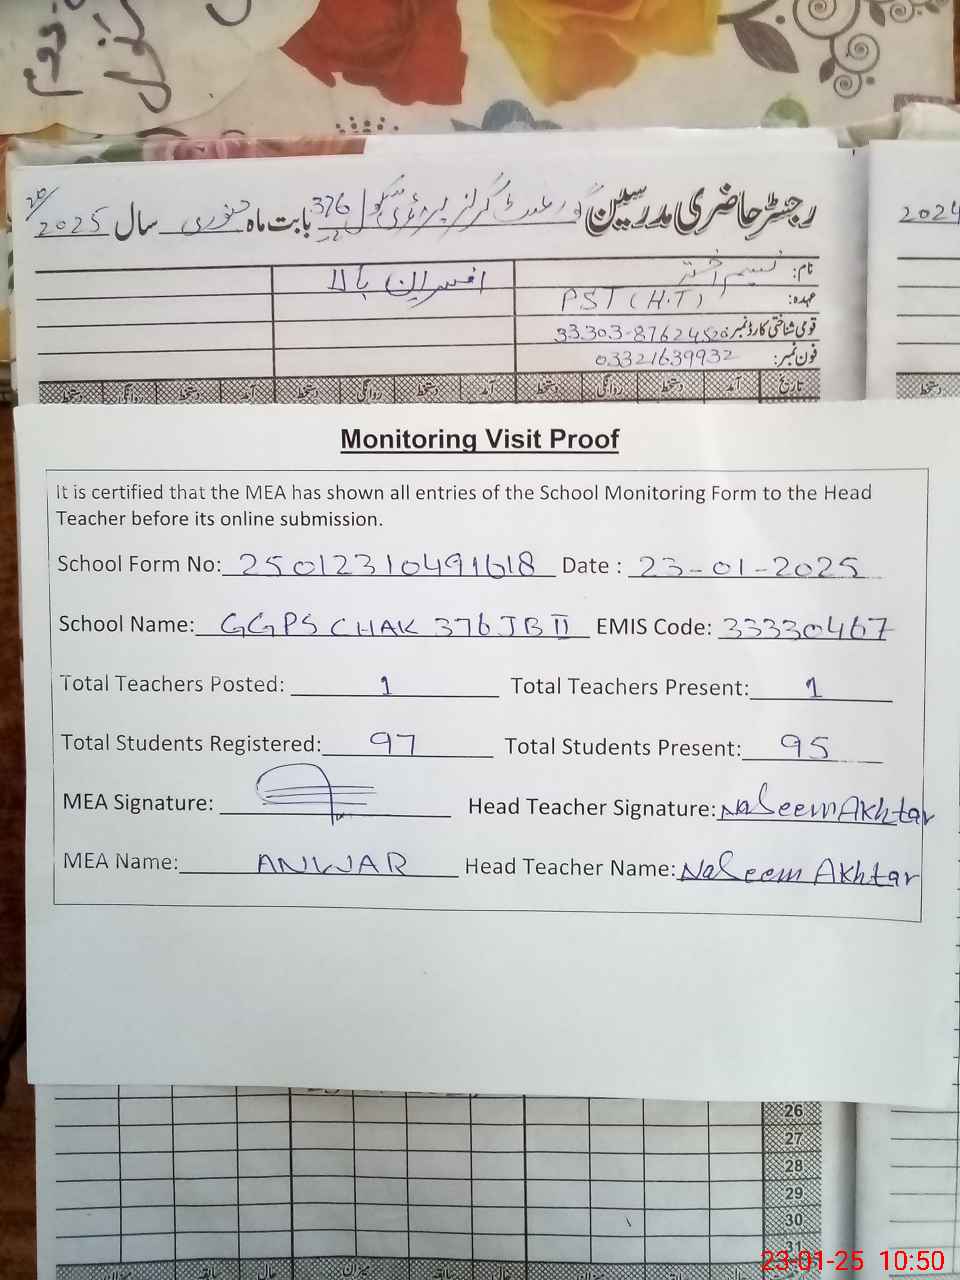 رجسٹر حاضری مدرسین گورنمنٹ گرلز پرائمری سکول 376 بابت ماہ جنوری سال 2025
2024
نام: نسیم اختر
افسران بالا
عہدہ: PST (H.T)
قومی شناختی کارڈ نمبر 33303-8762452
فون نمبر: 03321639932
تاریخ آمد دستخط روانگی دستخط آمد دستخط روانگی دستخط آمد دستخط روانگی دستخط
دستخط
Monitoring Visit Proof
It is certified that the MEA has shown all entries of the School Monitoring Form to the Head
Teacher before its online submission.
School Form No: 25012310491618 Date : 23-01-2025
School Name: GGPS CHAK 376 JB II EMIS Code: 33330467
Total Teachers Posted: 1 Total Teachers Present: 1
Total Students Registered: 97 Total Students Present: 95
MEA Signature: Head Teacher Signature: Naseem Akhtar
MEA Name: ANWAR Head Teacher Name: Naseem Akhtar
26
27
28
29
30
31
23-01-25 10:50